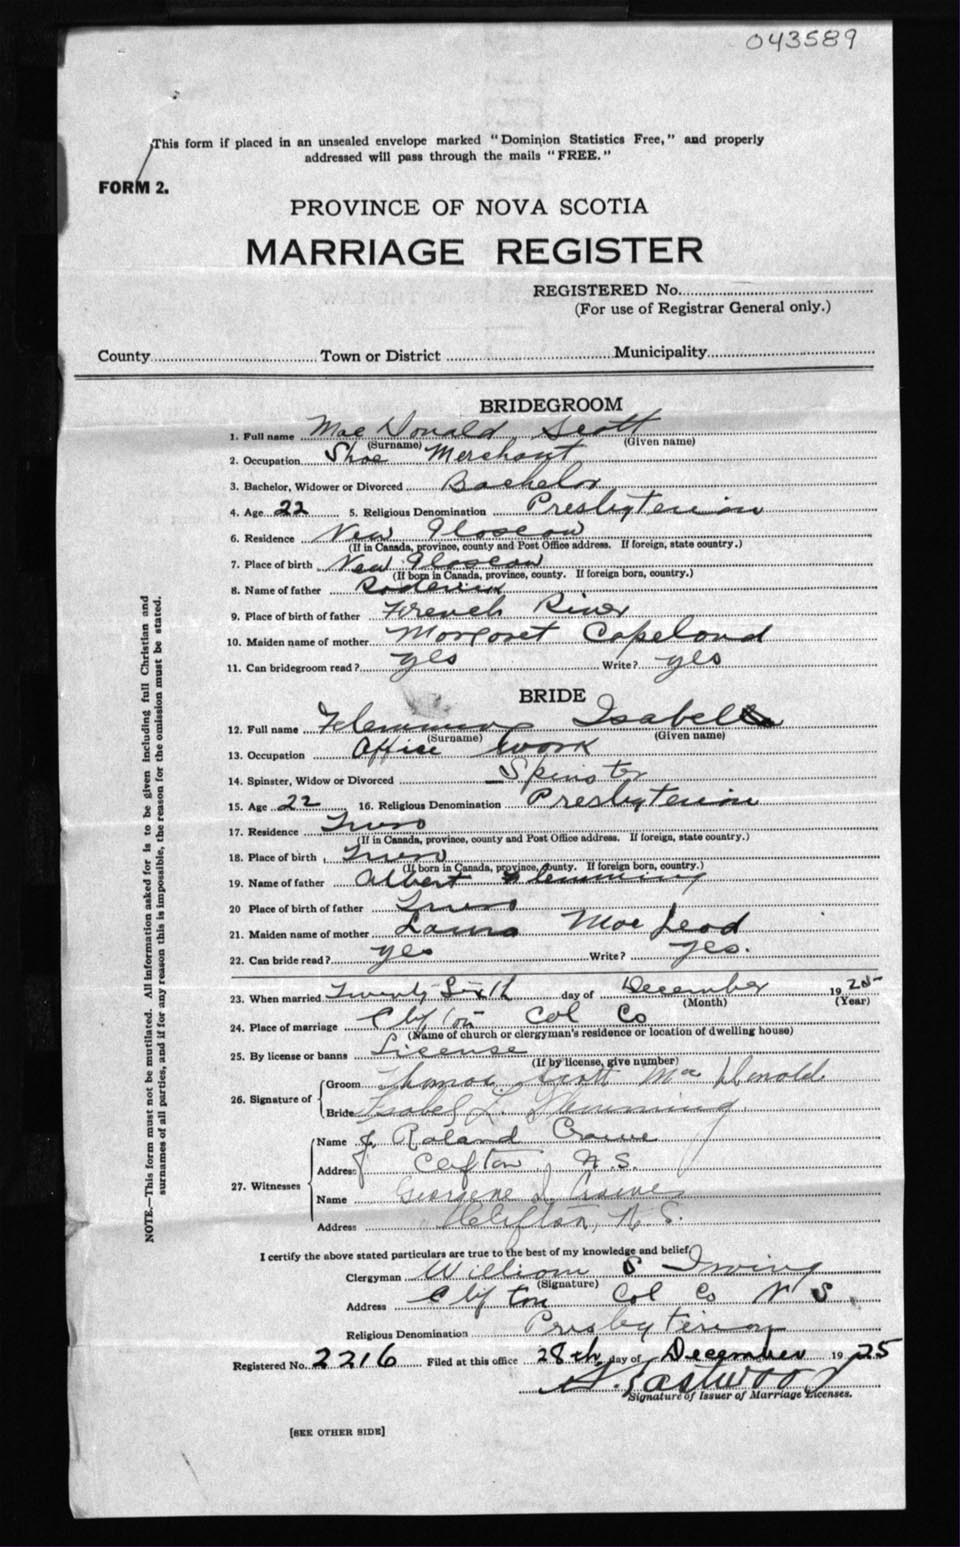 043589
This form if placed in an unsealed envelope marked "Dominion Statistics Free," and properly
addressed will pass through the mails "FREE."
FORM 2.
PROVINCE OF NOVA SCOTIA
MARRIAGE REGISTER
REGISTERED No.
(For use of Registrar General only.)
County Town or District Municipality
BRIDEGROOM
1. Full name Mac Donald Scott
(Surname) (Given name)
2. Occupation Shoe Merchant
3. Bachelor, Widower or Divorced Bachelor
4. Age 22 5. Religious Denomination Presbyterian
6. Residence New Glascow
(If in Canada, province, county and Post Office address. If foreign, state country.)
7. Place of birth New Glascow
(If born in Canada, province, county. If foreign born, country.)
8. Name of father Roderick
9. Place of birth of father French River
10. Maiden name of mother Margaret Copeland
11. Can bridegroom read? yes Write? yes
BRIDE
12. Full name Flemming Isabel
(Surname) (Given name)
13. Occupation Office Work
14. Spinster, Widow or Divorced Spinster
15. Age 22 16. Religious Denomination Presbyterian
17. Residence Truro
(If in Canada, province, county and Post Office address. If foreign, state country.)
18. Place of birth Truro
(If born in Canada, province, county. If foreign born, country.)
19. Name of father Albert Flemming
20 Place of birth of father Truro
21. Maiden name of mother Laura MacLeod
22. Can bride read? yes Write? yes.
23. When married Twenty Sixth day of December 1925
(Month) (Year)
24. Place of marriage Clifton Col Co
(Name of church or clergyman's residence or location of dwelling house)
25. By license or banns License
(If by license, give number)
26. Signature of
Groom Thomas Scott MacDonald
Bride Isabel L. Flemming
27. Witnesses
Name J. Roland Crowe
Address Clifton, N.S.
Name Georgene L. Crowe
Address Clifton, N.S.
I certify the above stated particulars are true to the best of my knowledge and belief,
Clergyman William S Irving
(Signature)
Address Clifton Col Co N S.
Religious Denomination Presbyterian
Registered No. 2216 Filed at this office 28th day of December 1925
Eastwood
Signature of Issuer of Marriage Licenses.
[SEE OTHER SIDE]
NOTE.—This form must not be mutilated. All information asked for is to be given including full Christian and
surnames of all parties, and if for any reason this is impossible, the reason for the omission must be stated.